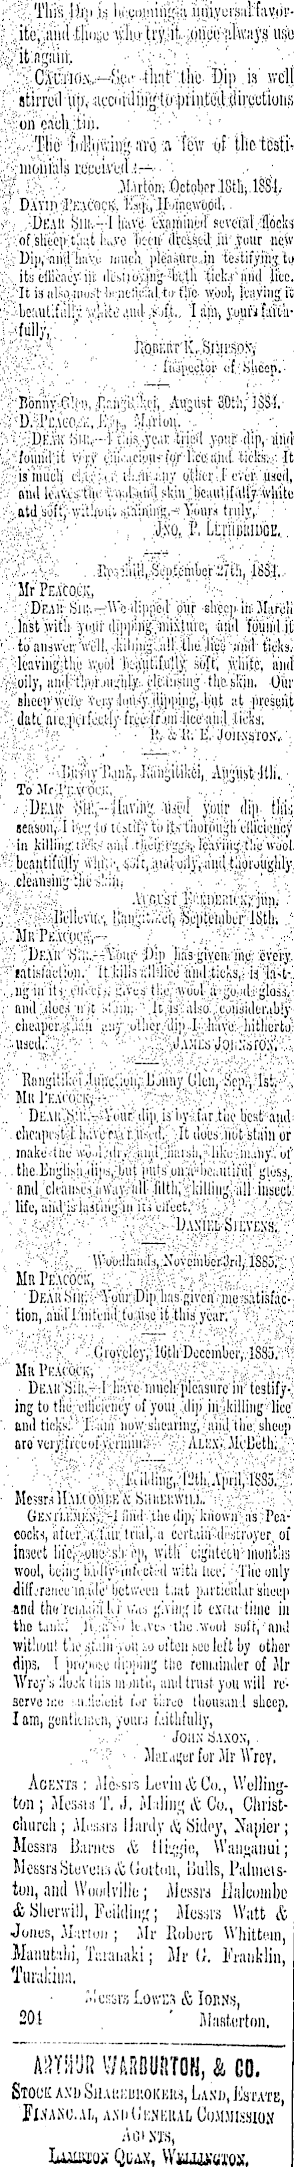 This Dip is becoming a universal favor-
ite, and those who try it once always use
it again.
CAUTION.—See that the Dip is well
stirred up, according to printed directions
on each tin.
The following are a few of the testi-
monials received:—
Marton, October 18th, 1884.
DAVID PEACOCK, Esq., Homewood.
DEAR SIR,—I have examined several flocks
of sheep that have been dressed in your new
Dip, and have much pleasure in testifying to
its efficacy in destroying both ticks and lice.
It is also most beneficial to the wool, leaving it
beautifully white and soft. I am, yours faith-
fully,
ROBERT K. SIMPSON,
Inspector of Sheep.
Bonny Glen, Rangitikei, August 30th, 1884.
D. PEACOCK, Esq., Marton.
DEAR SIR.—I this year tried your dip, and
found it very efficacious for lice and ticks. It
is much cheaper than any other I ever used,
and leaves the wool and skin beautifully white
and soft, without staining.—Yours truly,
JNO. P. LETHBRIDGE.
Rosehill, September 27th, 1884.
Mr PEACOCK,
DEAR SIR.—We dipped our sheep in March
last with your dipping mixture, and found it
to answer well, killing all the lice and ticks.
leaving the wool beautifully soft, white, and
oily, and thoroughly cleansing the skin. Our
sheep were very lousy dipping, but at present
date are perfectly free from lice and ticks.
R. & R. E. JOHNSTON.
Bushy Bank, Rangitikei, August 4th.
To Mr PEACOCK,
DEAR SIR,—Having used your dip this
season, I beg to testify to its thorough efficiency
in killing ticks and their eggs, leaving the wool
beautifully white, soft, and oily, and thoroughly
cleansing the skin.
AUGUST BENDERICK, jun.
Bellevue, Rangitikei, September 18th.
MR PEACOCK,—
DEAR SIR.—Your Dip has given me every
satisfaction. It kills all lice and ticks, is last-
ing in its effects, gives the wool a good gloss,
and does not stain. It is also considerably
cheaper than any other dip I have hitherto
used. JAMES JOHNSTON.
Rangitikei Junction, Bonny Glen, Sep., 1st.
MR PEACOCK,—
DEAR SIR.—Your dip is by far the best and
cheapest I have ever used. It does not stain or
make the wool dry and harsh, like many of
the English dips, but puts on a beautiful gloss,
and cleanses away all filth, killing all insect
life, and is lasting in its effect.
DANIEL STEVENS.
Woodlands, November 3rd, 1885.
MR PEACOCK,
DEAR SIR—Your Dip has given me satisfac-
tion, and I intend to use it this year.
Groveley, 16th December, 1885.
MR PEACOCK,
DEAR SIR.—I have much pleasure in testify-
ing to the efficiency of your dip in killing lice
and ticks. I am now shearing, and the sheep
are very free of vermin. ALEX. MCBETH.
Feilding, 12th April, 1885.
Messrs HALCOMBE & SHERWILL.
GENTLEMEN,—I find the dip, known as Pea-
cocks, after a fair trial, a certain destroyer of
insect life, one sheep, with eighteen months
wool, being badly infected with lice. The only
difference made between that particular sheep
and the remainder was giving it extra time in
the tank. It also leaves the wool soft, and
without the stain you so often see left by other
dips. I propose dipping the remainder of Mr
Wrey's flock this month, and trust you will re-
serve me sufficient for three thousand sheep.
I am, gentlemen, yours faithfully,
JOHN SAXON,
Manager for Mr Wrey.
AGENTS: Messrs Levin & Co., Welling-
ton; Messrs T. J. Maling & Co., Christ-
church; Messrs Hardy & Sidey, Napier;
Messrs Barnes & Higgie, Wanganui;
Messrs Stevens & Gorton, Bulls, Palmers-
ton, and Woodville; Messrs Halcombe
& Sherwill, Feilding; Messrs Watt &
Jones, Marton; Mr Robert Whittem,
Manutahi, Taranaki; Mr G. Franklin,
Turakina.
Messrs LOWES & IORNS,
201 Masterton.
ARTHUR WARBURTON, & CO.
STOCK AND SHAREBROKERS, LAND, ESTATE,
FINANCIAL, AND GENERAL COMMISSION
AGENTS,
LAMBTON QUAY, WELLINGTON.